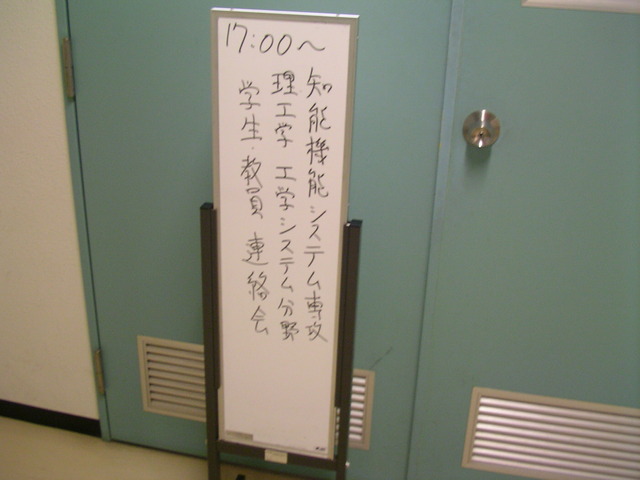 17:00～
知能機能システム専攻
理工学 工学システム分野
学生・教員 連絡会